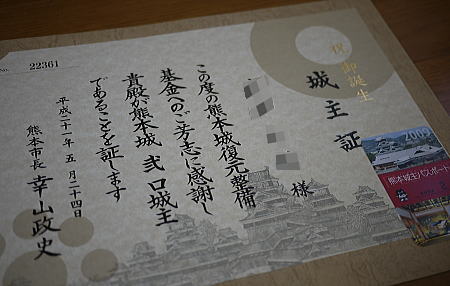 No. 22361
祝御誕生
城主証
様
この度の熊本城復元整備
基金へのご芳志に感謝し
貴殿が熊本城 弐口城主
であることを証します
平成二十一年 五月二十四日
熊本市長 幸山政史
2009
熊本城主パスポート